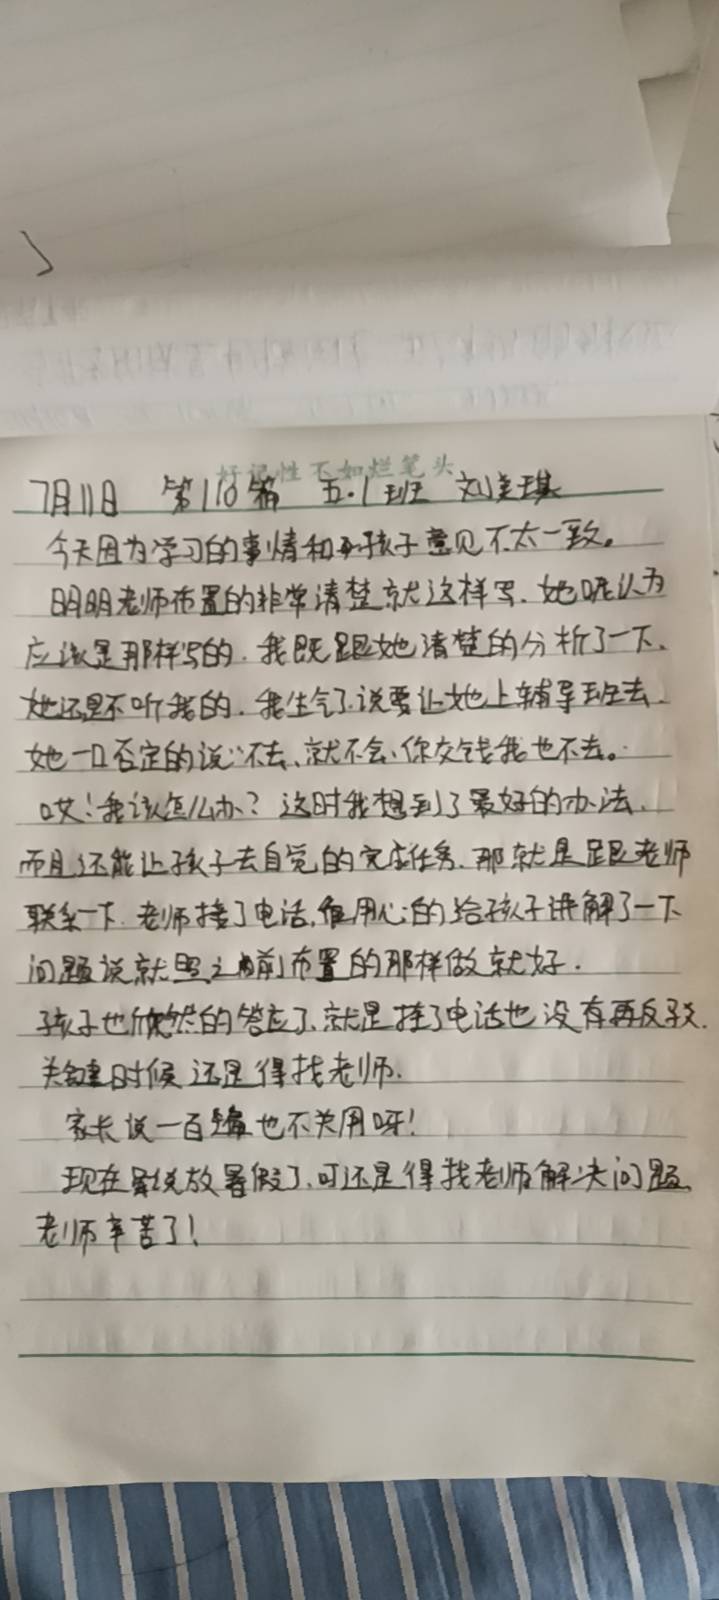 好记性不如烂笔头
7月11日 第110篇 五.1班 刘美琪
今天因为学习的事情和孩子意见不太一致。
明明老师布置的非常清楚就这样写.她呢认为
应该是那样写的.我既跟她清楚的分析了一下、
她还是不听我的.我生气了.说要让她上辅导班去.
她一口否定的说“不去、就不会、你交钱我也不去。
哎!我该怎么办?这时我想到了最好的办法、
而且还能让孩子去自觉的完成任务.那就是跟老师
联系一下.老师接了电话,很用心的给孩子讲解了一下
问题说就照之前布置的那样做就好.
孩子也欣然的答应了.就是挂了电话也没有再反驳.
关键时候还是得找老师.
家长说一百遍也不关用呀!
现在虽说放暑假了.可还是得找老师解决问题
老师辛苦了!